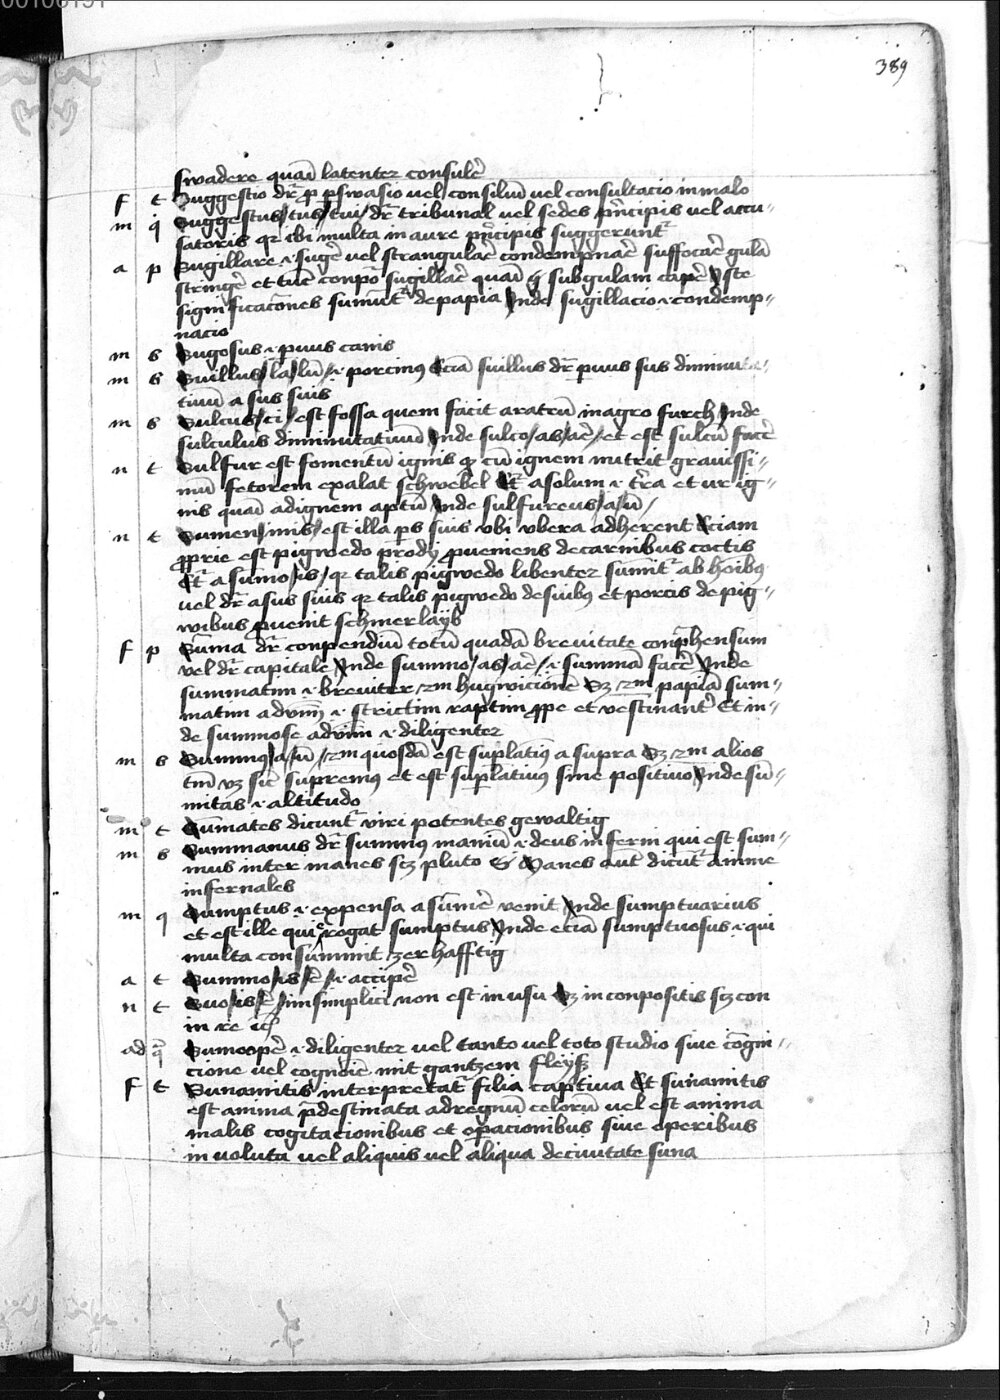 00106191
389
swadere quasi latenter consule͛
f t Suggestio dr̄ ꝑ ꝑswasio uel consiliū uel consultacio in malo
m q̇ Suggestus/tus/tui/ dr̄ tribunal uel sedes pn̄cipis uel accu-
satoris qꝛ ibi multa in aure pn̄cipis suggerunt᷑
a p Sugillare .i. suge͛ uel strangulac͛ condempnac͛ suffocac͛ gulā
stringe͛ et tūc conpo͛ sugillac͛ quasi sub gulam cape͛ Iste
significacōnes sumūt᷑ de papia Inde sugillacio .i. condemp-
nacio
m s Sugosus .i. ꝑuus canis
m s Suillus/la/lū/ .i. porcinꝰ Eciā suillus dr̄ ꝑuus sus diminuta-
tiuū a sus suis
m s Sulcus/ci/ est fossa quem facit aratrū in agro furch Inde
sulculus diminutatiuū Inde sulco/as/ac͛/ et est sulcū face͛
n t Sulfur est fomentū ignis qꝛ cū ignem nutrit grauissi-
mū fetorem exalat schwebel Et᷑ a solum .i. tr̄a et ur ig-
nis quasi ad ignem aptū Inde sulfureus/a/ū/
n t Sumen/inis/ est illa ꝑs suis vbi vbera adherent Eciam
ꝓprie est pigwedo prodij ꝓueniens de carnibus coctis
Et᷑ a sumo/is/ qꝛ talis pigwedo libenter sumit᷑ ab hoībꝰ
uel dr̄ a sus suis qꝛ talis pigwedo de suibꝰ et porcis de pig-
wibus ꝓuenit schmerlayb
f p Sūma dr̄ conpendiū totū quadā breuitate conp̄hensum
uel dr̄ capitale Inde summo/as/ac͛/ .i. summā face͛ Inde
summatim .i. breuiter ẜm hugwicionē Sꝫ ẜm papiā sum-
matim aduīū .i. strictim raptim ꝓpe et vestinant͛ Et in-
de summose aduīū .i. diligenter
m s Summus/a/ū/ ẜm quosdā est suꝑlatiꝰ a supra Sꝫ ẜm alios
tm̄ vꝫ sic̄ supremꝰ et est suꝑlatiuꝰ sine positiuo Inde sū-
mitas .i. altitudo
m t Sūmates dicunt᷑ viri potentes gewaltig
m s Summanus dr̄ summꝰ maniū .i. deus inferni qui est sum-
mus inter manes scꝫ pluto Manes aut̄ dicūt᷑ anime
infernales
m q Sumptus .i. expensa a sūme͛ venit Inde sumptuarius
et est ille qui erogat sumptus Inde eciā sumptuosus .i. qui
multa consummit zerhafftig
a t Summo/is/e͛/ .i. accipe͛
n t Suo/is/e͛/ in simplici non est in usu Sꝫ in conpositis scꝫ con
in re
ad q̄ Sumoope͛ .i. diligenter uel tanto uel toto studio siue cōgni-
cione uel cognoīe mit gantzem fleyß
f t Sunamitis interpretat᷑ filia captiua Et sunamitis
est anima p̄destinata ad regnū celorū uel est anima
malis cogitacionibus et oꝑacionibus siue operibus
in uoluta uel aliquis uel aliqua de ciuitate suna